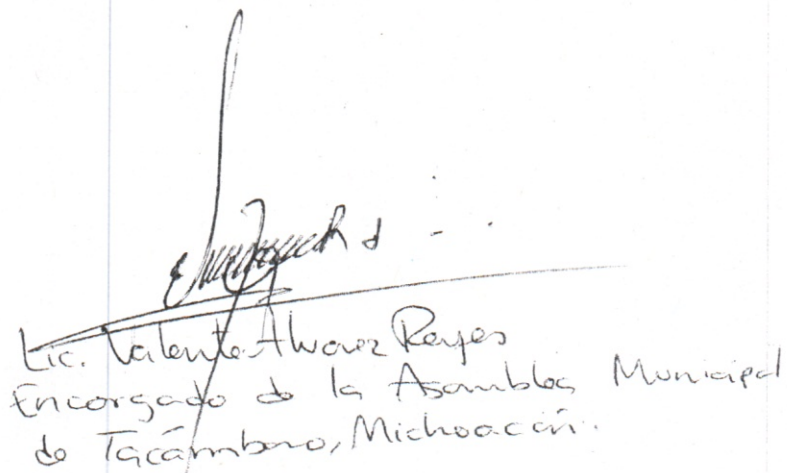 Lic. Valente Alvarez Reyes
Encargado de la Asamblea Municipal
de Tacámbaro, Michoacán.